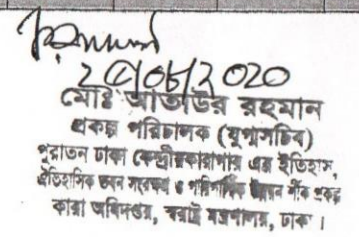 ২৫/০৮/২০২০
মোঃ আতাউর রহমান
প্রকল্প পরিচালক (যুগ্মসচিব)
পুরাতন ঢাকা কেন্দ্রীয়কারাগার এর ইতিহাস,
ঐতিহাসিক ভবন সংরক্ষণ ও পারিপার্শ্বিক উন্নয়ন শীর্ষক প্রকল্প
কারা অধিদপ্তর, স্বরাষ্ট্র মন্ত্রণালয়, ঢাকা ।